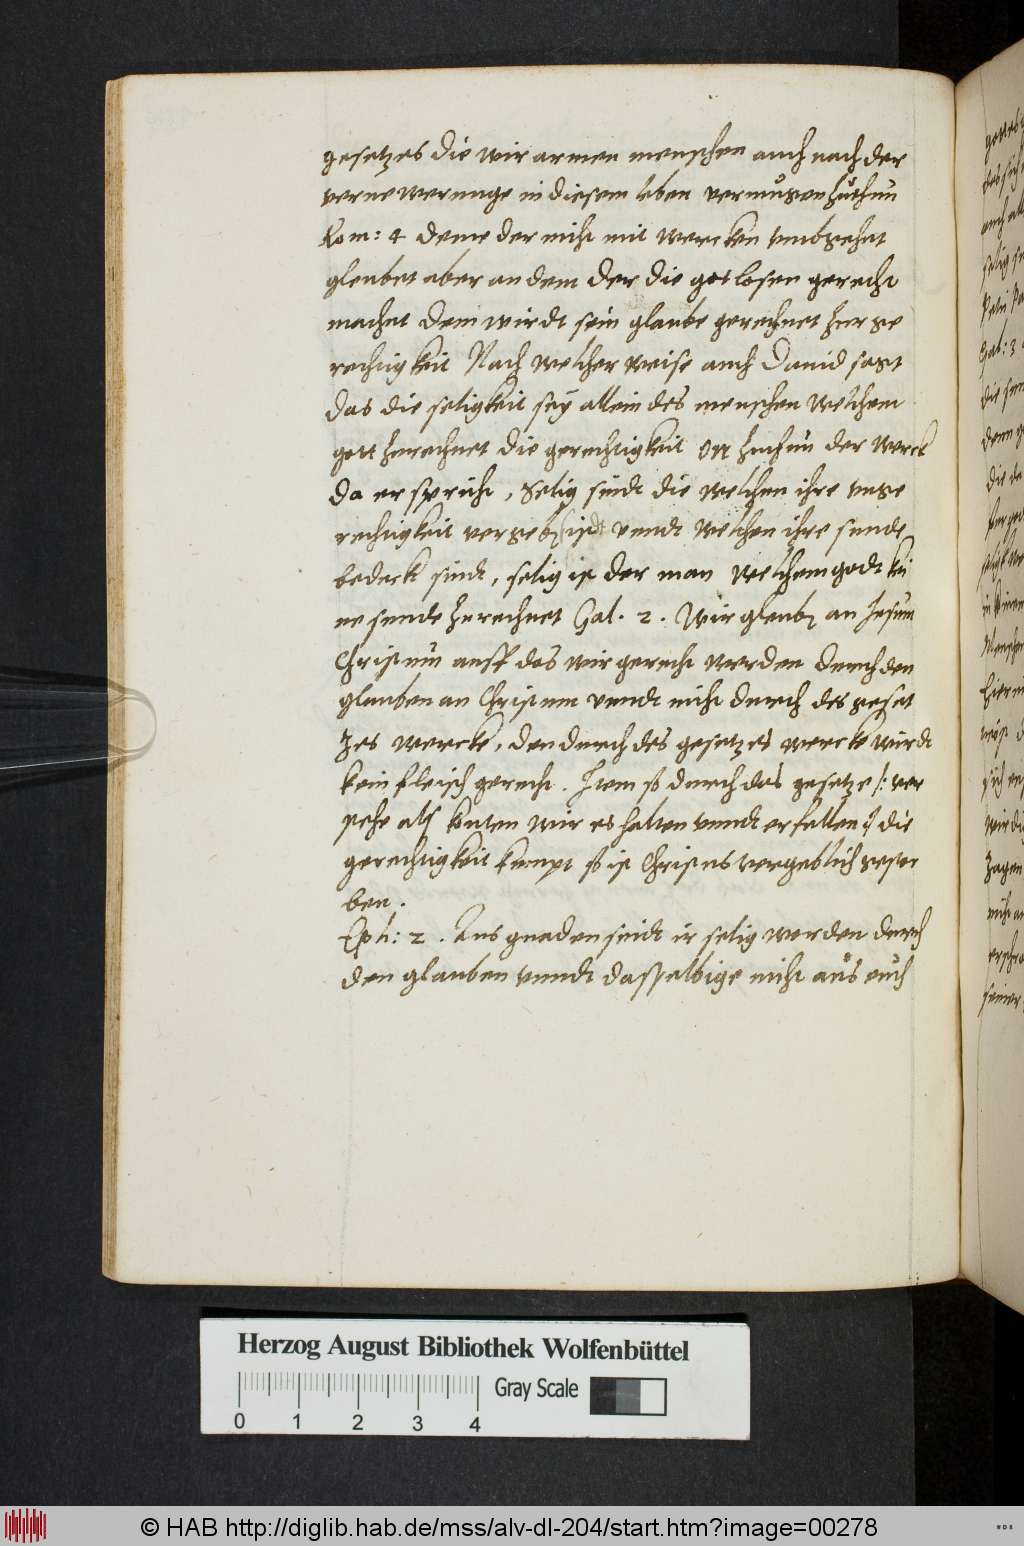 gesetzes die wir armen menschen auch nach der
vernewerunge in diesem leben vermugen zuthun
Rom: 4 deme der nicht mit wercken umbgehet
gleubet aber an dem der die gotlosen gerecht
machet dem wirdt sein glaube gerechnet zur ge
rechtigkeit Nach welcher weise auch Dauid sagt
das die seligkeit sey allein des menschen welchem
gott zurechnet die gerechtigkeit on zuthun der werck
da er spricht, Selig sindt die welchen ihre unge
rechtigkeit vergeben ist unndt welchen ihre sunde
bedeckt sindt, selig ist der man welchem godt kei
ne sunde zurechnet Gal. 2. Wir gleuben an Jesum
Christum auff das wir gerecht werden durch den
glauben an Christum unndt nicht durch des geset
zes wercke, den durch des gesetzes wercke wirdt
kein fleisch gerecht. Item so durch das gesetze /: ver
stehe als konten wir es halten unndt erfullen :/ die
gerechtigkeit kumpt so ist Christus vergeblich gestor
ben.
Eph: 2. Aus gnaden seidt ir selig worden durch
den glauben unndt dasselbige nicht aus euch
Herzog August Bibliothek Wolfenbüttel
Gray Scale
0 1 2 3 4
© HAB http://diglib.hab.de/mss/alv-dl-204/start.htm?image=00278